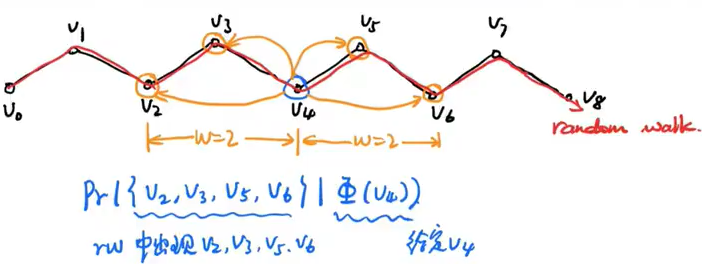 V₁ V₃ V₅ V₇
V₀ V₂ V₄ V₆ V₈
random walk.
w=2 w=2
Pr({V₂, V₃, V₅, V₆} | Φ(V₄))
rw 中出现 V₂, V₃, V₅. V₆ 给定 V₄